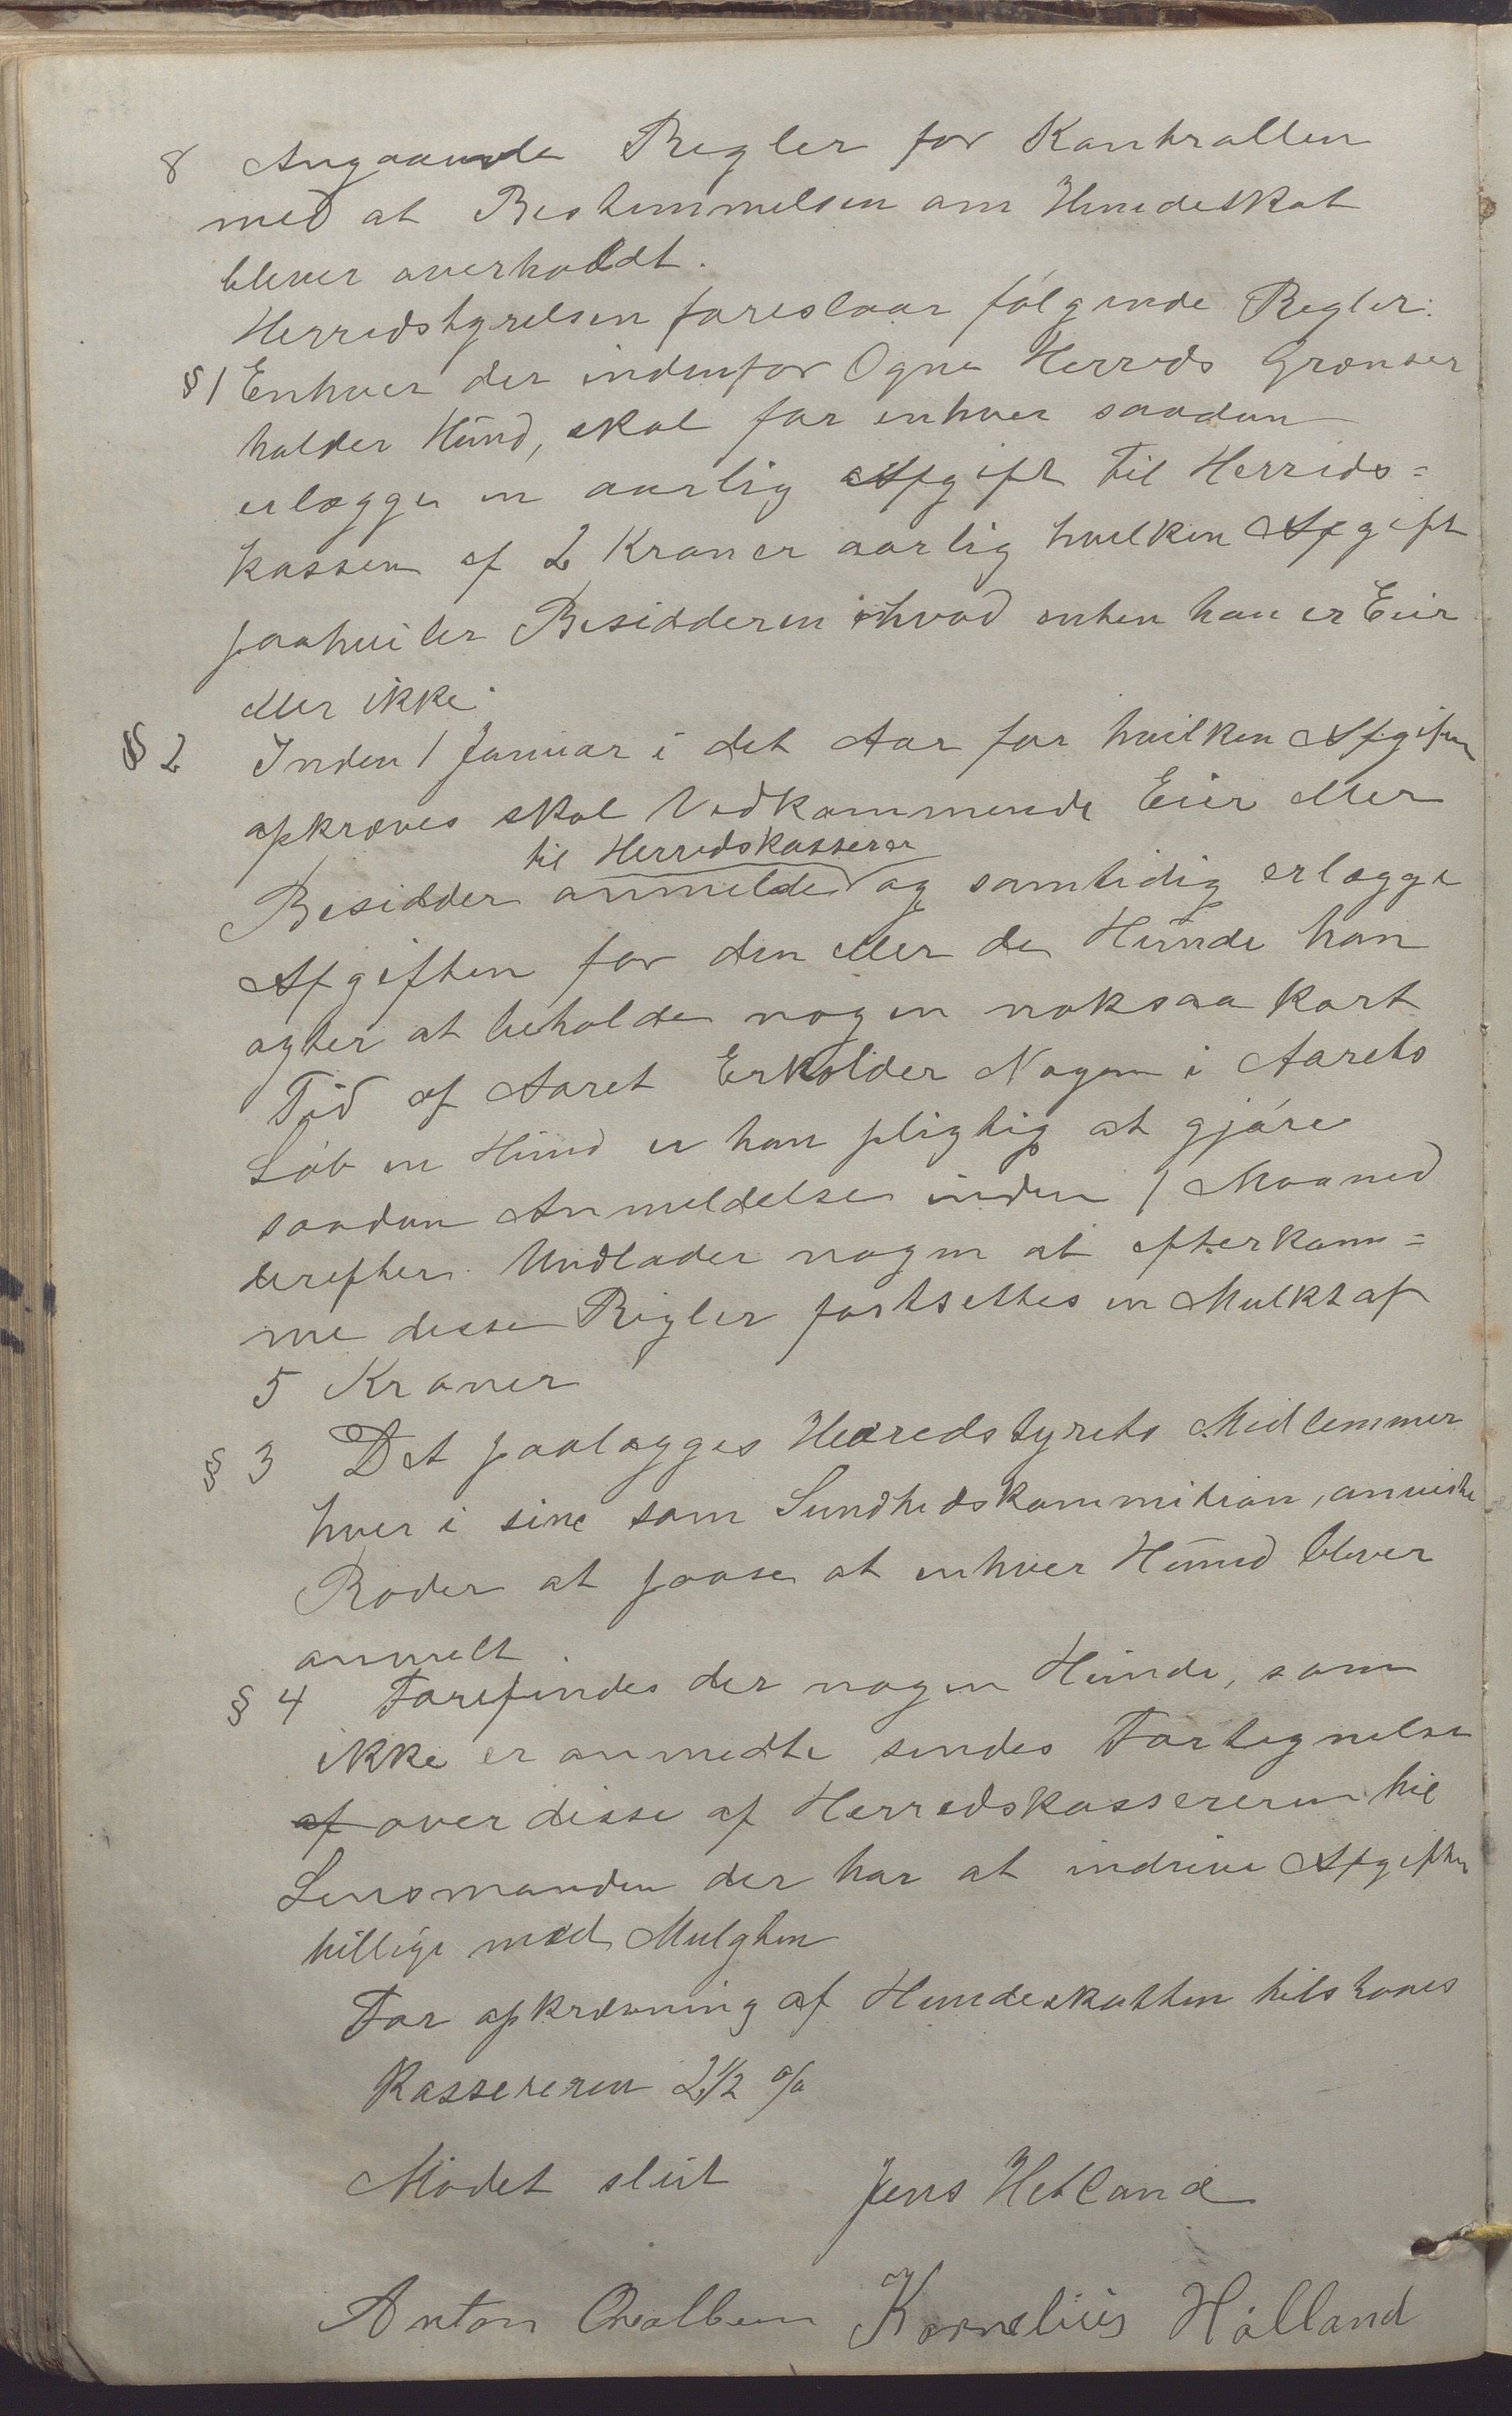 8 Angaaende Regler for Kontrollen
med at Bestemmelsen om Hundeskat
bliver overholdt.
Herredstyrelsen foreslaar følgende Regler:
§ 1 Enhver der indenfor Ogne Herreds Grænser
holder Hund, skal for enhver saadan
erlægge en aarlig Afgift til Herreds=
kassen af 2 Kroner aarlig hvilken Afgift
paahviler Besidderen ihvad enten han er Eier
eller ikke.
§ 2 Inden 1 Januar i det Aar for hvilken Afgiften
opkræves skal Vedkommende Eier eller
til Herredskasserer
Besidder anmelde og samtidig erlægge
Afgiften for den eller de Hunde han
agter at beholde nogen noksaa kort
Tid af Aaret Erholder Nogen i Aarets
Løb en Hund er han pligtig at gjøre
saadan Anmeldelse inden 1 Maaned
derefter. Undlader nogen at efterkom=
me disse Regler fastsettes en Mulkt af
5 Kroner
§ 3 Det paalægges Herredstyrets Medlemmer
hver i sine som Sundhedskommition, anviste
Roder at paase at enhver Hund bliver
anmelt.
§ 4 Forefindes der nogen Hunde, som
ikke er anmeldte sendes Fortegnelse
af over disse af Herredskassereren til
Lensmanden der har at indrive Afgiften
tillige med Mulgten
For opkrævning af Hundeskatten tilstaaes
Kassereren 2 1/2 %
Mødet slut Jens Hetland
Anton Qvalbein Kornelius Hålland